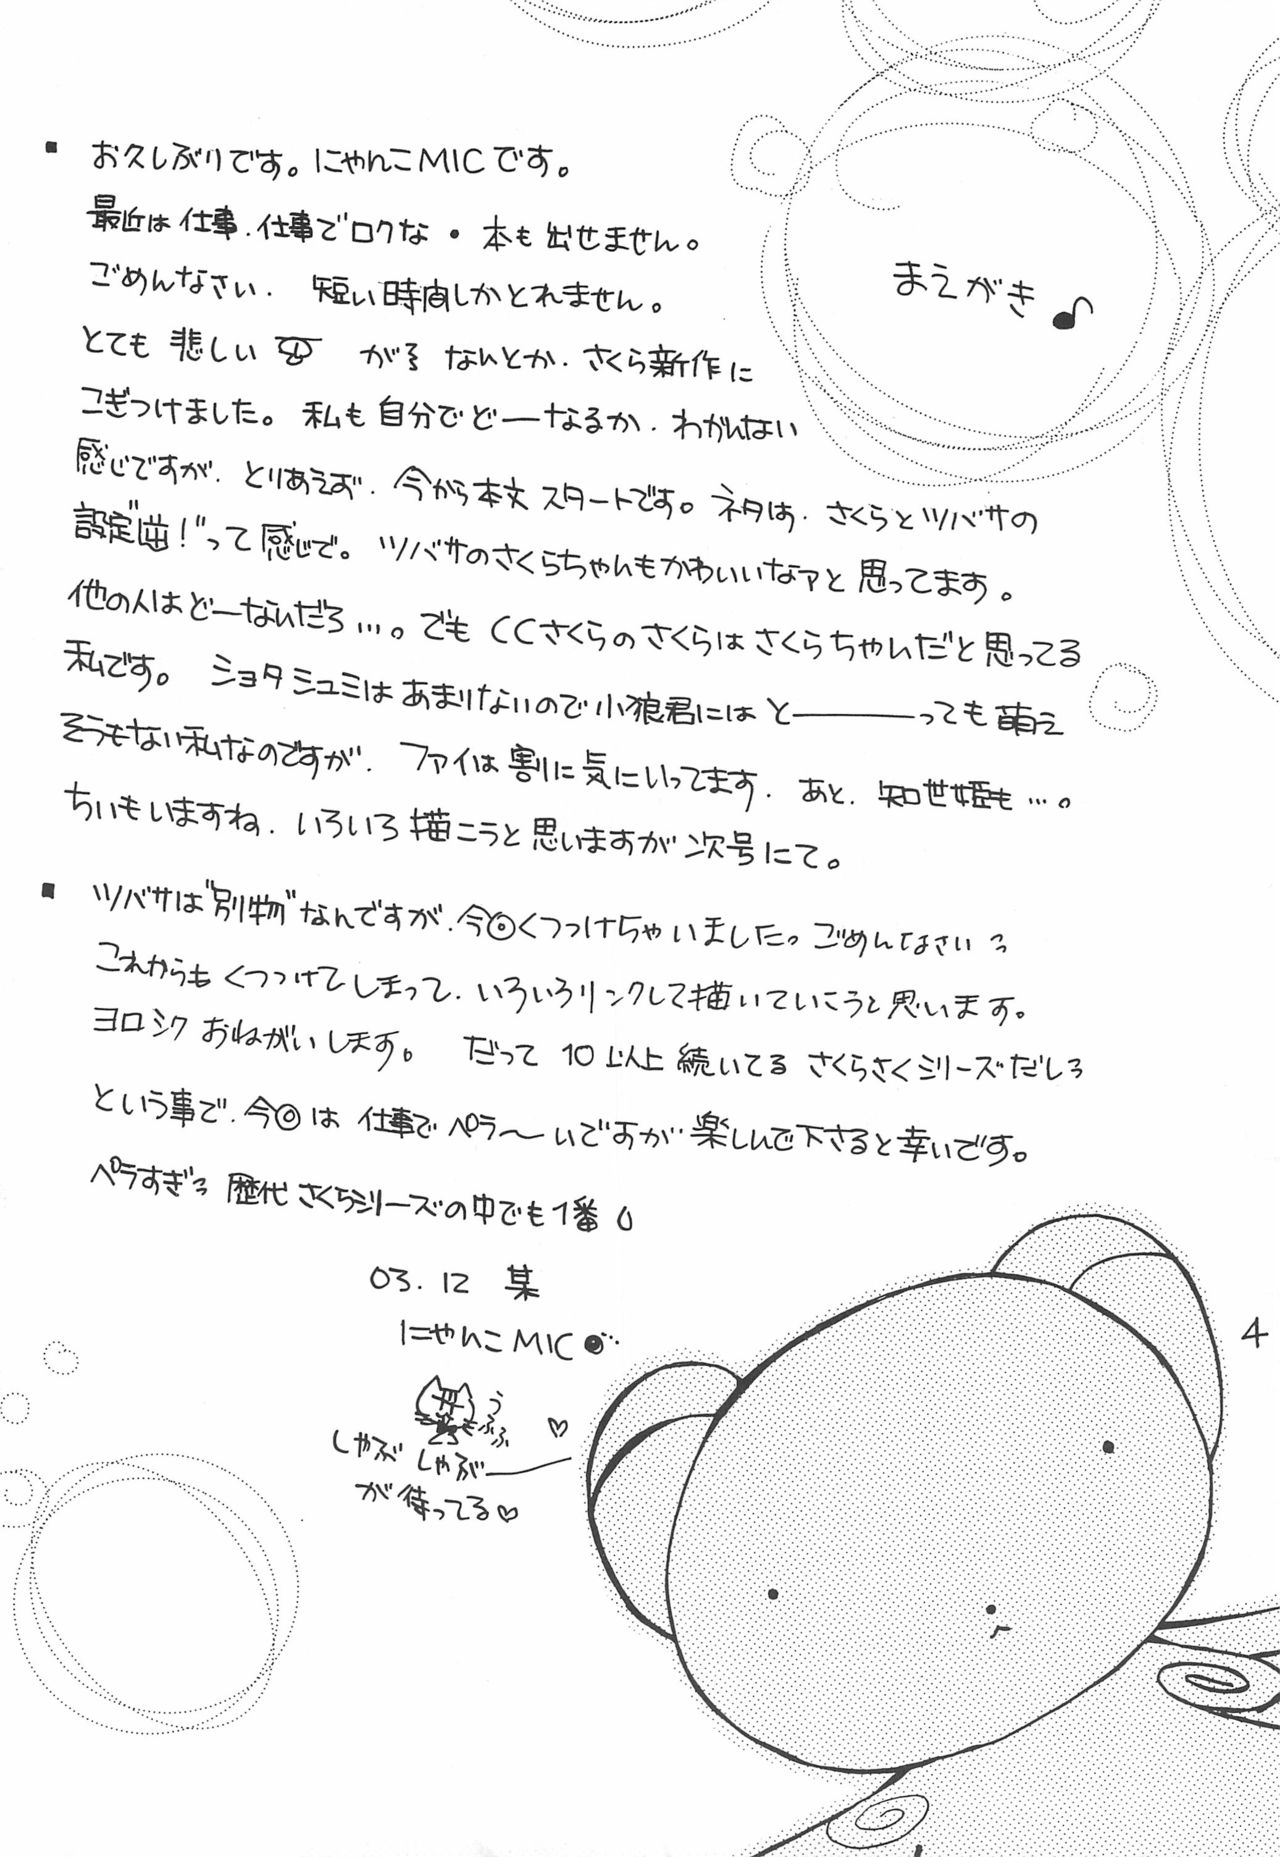 まえがき♪
■ お久しぶりです。にゃんこMICです。
最近は仕事、仕事でロクな・本も出せません。
ごめんなさい、短い時間しかとれません。
とても悲しい が なんとか、さくら新作に
こぎつけました。私も自分でどーなるか、わかんない
感じですが、とりあえず、今から本文スタートです。ネタは、さくらとツバサの
設定"逆!"って感じで。ツバサのさくらちゃんもかわいいなァと思ってます。
他の人はどーなんだろ…。でもCCさくらのさくらはさくらちゃんだと思ってる
私です。ショタシュミはあまりないので小狼君にはと―――っても萌え
そうもない私なのですが、ファイは割に気にいってます、あと、知世姫も…。
ちぃもいますね、いろいろ描こうと思いますが次号にて。
■ ツバサは"別物"なんですが、今回くっつけちゃいました。ごめんなさいっ
これからもくっつけてしまって、いろいろリンクして描いていこうと思います。
ヨロシクおねがいします。だって10以上続いてるさくらさくシリーズだしっ
という事で、今回は仕事でペラ〜いですが、楽しんで下さると幸いです。
ペラすぎっ 歴代さくらシリーズの中でも1番
03.12 某
にゃんこMIC
うふふ
♡
しゃぶしゃぶ
が待ってる♡
4